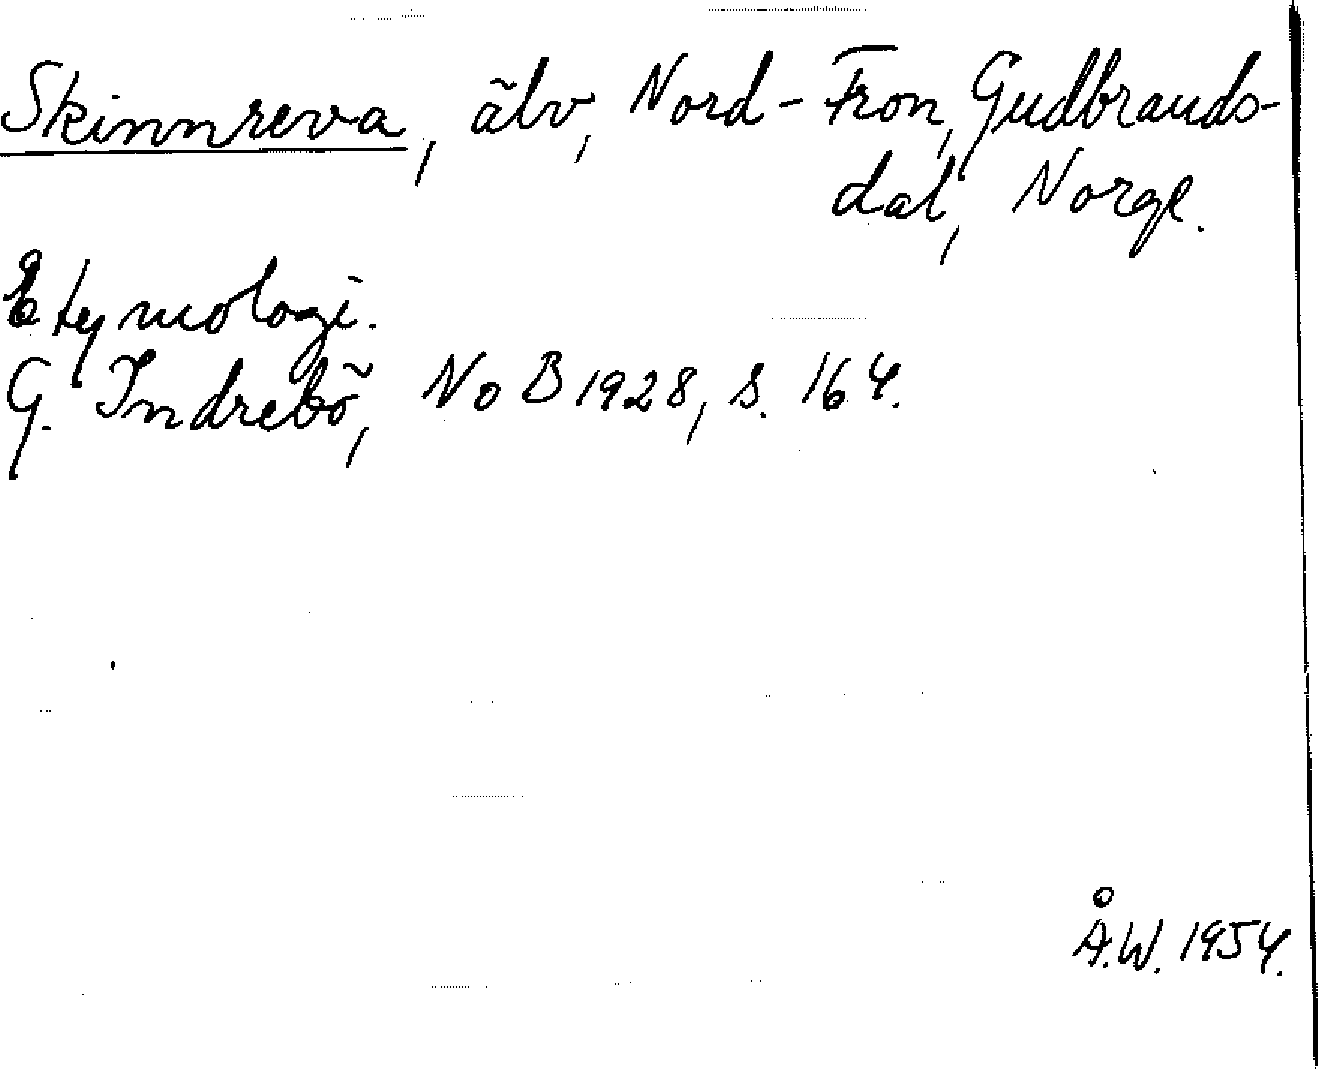 Skinnreva, älv, Nord-Fron, Gudbrands-
dal, Norge.
Etymologi.
G. Indrebö, NoB 1928, s. 164.
Å.W. 1954.